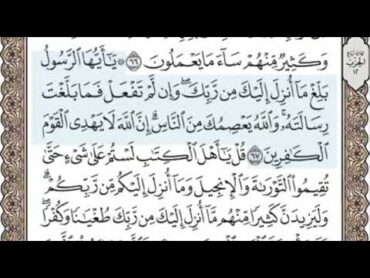 وَكَثِيرٌ مِّنْهُمْ سَآءَ مَا يَعْمَلُونَ ٦٦ ۞ يَٰٓأَيُّهَا ٱلرَّسُولُ
بَلِّغْ مَآ أُنزِلَ إِلَيْكَ مِن رَّبِّكَ ۖ وَإِن لَّمْ تَفْعَلْ فَمَا بَلَّغْتَ
رِسَالَتَهُۥ ۚ وَٱللَّهُ يَعْصِمُكَ مِنَ ٱلنَّاسِ ۗ إِنَّ ٱللَّهَ لَا يَهْدِى ٱلْقَوْمَ
ٱلْكَٰفِرِينَ ٦٧ قُلْ يَٰٓأَهْلَ ٱلْكِتَٰبِ لَسْتُمْ عَلَىٰ شَىْءٍ حَتَّىٰ
تُقِيمُوا۟ ٱلتَّوْرَىٰةَ وَٱلْإِنجِيلَ وَمَآ أُنزِلَ إِلَيْكُم مِّن رَّبِّكُمْ ۗ
وَلَيَزِيدَنَّ كَثِيرًا مِّنْهُم مَّآ أُنزِلَ إِلَيْكَ مِن رَّبِّكَ طُغْيَٰنًا وَكُفْرًا ۖ